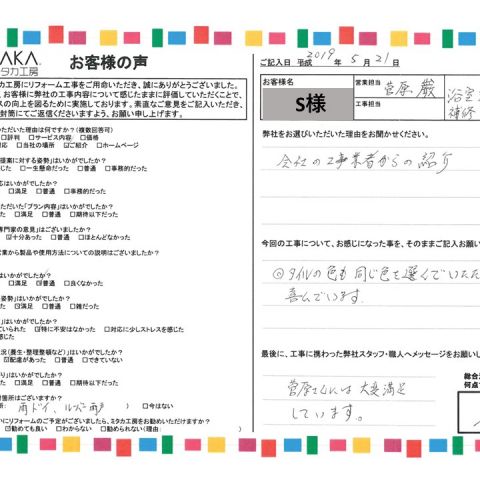 AKA
タカ工房
お客様の声
カ工房にリフォーム工事をご用命いただき、誠にありがとうございました。
お客様に弊社の工事内容について感じたままに評価していただくことで、
スの向上を図るために実施しております。素直なご意見をご記入いただき、
封筒にてご返信くださいますよう、お願い申し上げます。
ただいた理由は何ですか?(複数回答可)
□評判 □サービス内容 □価格
対応 □当社の場所 ☑ご紹介 □ホームページ
提案に対する姿勢」はいかがでしたか?
じた □一生懸命だった □普通 □事務的だった
応はいかがでしたか?
□満足 □普通 □事務的だった
ただいた「プラン内容」はいかがでしたか?
□満足 □普通 □期待以下だった
専門家の意見」はございましたか?
☑十分あった □普通 □ほとんどなかった
営業から製品や使用方法についての説明はございましたか?
はいかがでしたか?
□満足 ☑普通 □良くなかった
姿勢」はいかがでしたか?
た ☑満足 □普通 □雑だった
はいかがでしたか?
ていられた ☑特に不安はなかった □対応に少しストレスを感じた
感じた
況(養生・整理整頓など)」はいかがでしたか?
☑配慮があった □普通 □できていない
り」はいかがでしたか?
□満足 □普通 □期待以下だった
箇所はございますか?
所: 雨ドイ、 □今はない
にリフォームのご予定がございましたら、ミタカ工房をお勧めいただけますか?
☑勧めても良い □わからない □勧められない(理由
ご記入日 平成 2019 年 5 月 21 日
お客様名
S様
営業担当 菅原 巌
工事担当
浴室
補修
弊社をお選びいただいた理由をお聞かせください。
会社の工事業者からの紹介
今回の工事について、お感じになった事を、そのままご記入お願い
◎タイルの色も同じ色を選んでいただ
喜んでいます。
最後に、工事に携わった弊社スタッフ・職人へメッセージをお願いし
菅原さんには大変満足
しています。
総合
何点